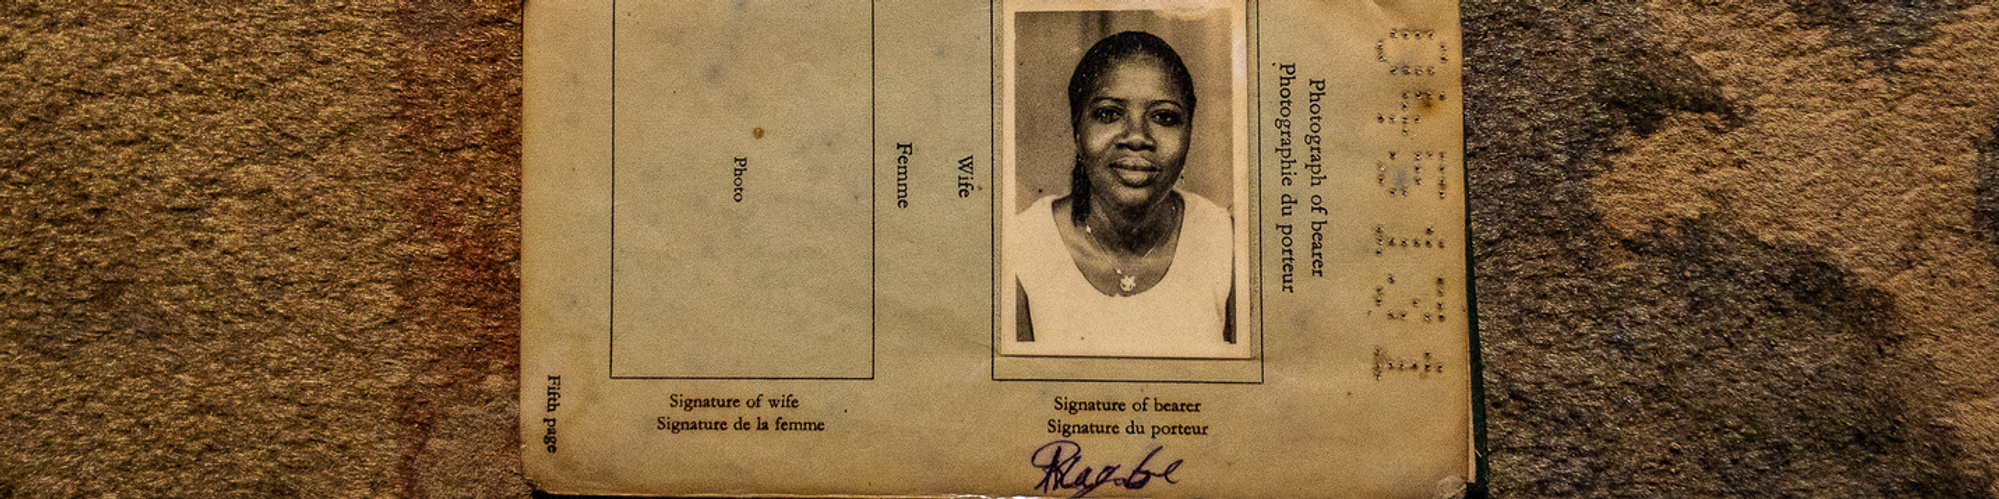 Photograph of bearer
Photographie du porteur
Wife
Femme
Photo
Signature of wife
Signature de la femme
Signature of bearer
Signature du porteur
Fifth page